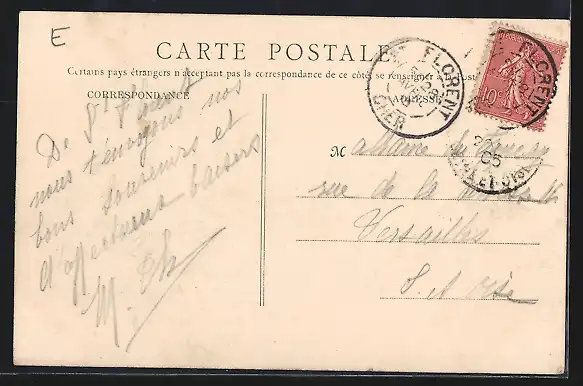 E
CARTE POSTALE
Certains pays étrangers n'acceptant pas la correspondance de ce côté se renseigner à la poste
CORRESPONDANCE
ADRESSE
De St Florent
nous t'envoyons nos
bons souvenirs et
d'affectueux baisers
M. Th
Madame du
rue de la
Versailles
S. et Oise
ST FLORENT
CHER
10c
FLORENT
05